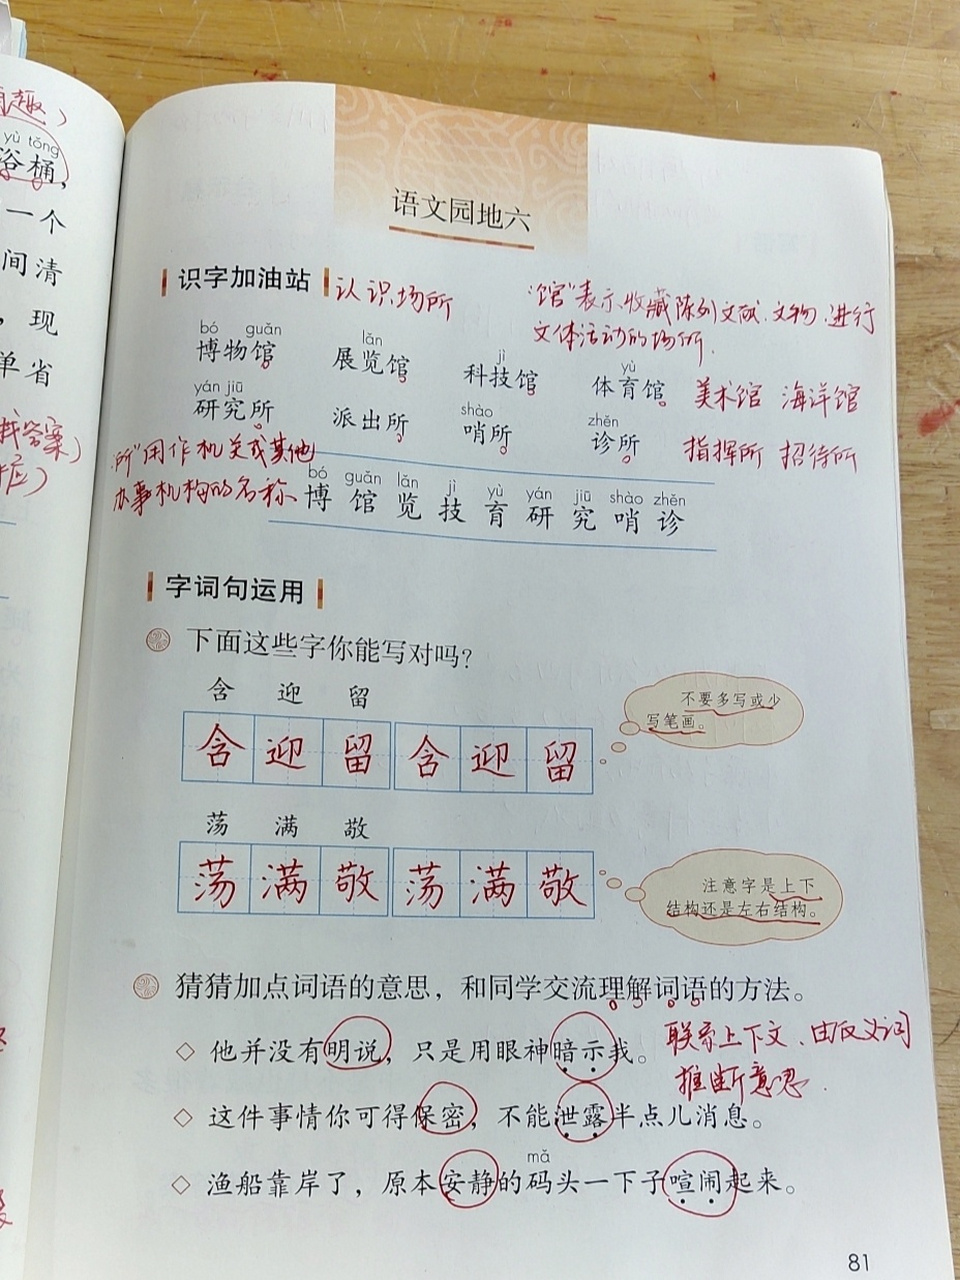 趣）
yù tǒng
浴桶，
一个
间清
，现
单省
找答案）
语文园地六
识字加油站 认识场所
“馆”表示收藏陈列文献、文物、进行
文体活动的场所.
bó guǎn lǎn jì yù
博物馆 展览馆 科技馆 体育馆 美术馆 海洋馆
yán jiū shào zhěn
研究所 派出所 哨所 诊所 指挥所 招待所
“所”用作机关或其他
办事机构的名称
bó guǎn lǎn jì yù yán jiū shào zhěn
博 馆 览 技 育 研 究 哨 诊
字词句运用
下面这些字你能写对吗？
含 迎 留
含 迎 留 含 迎 留
不要多写或少
写笔画。
荡 满 敬
荡 满 敬 荡 满 敬
注意字是上下
结构还是左右结构。
猜猜加点词语的意思，和同学交流理解词语的方法。
◇ 他并没有明说，只是用眼神暗示我。
联系上下文、由反义词
推断意思.
◇ 这件事情你可得保密，不能泄露半点儿消息。
mǎ
◇ 渔船靠岸了，原本安静的码头一下子喧闹起来。
81